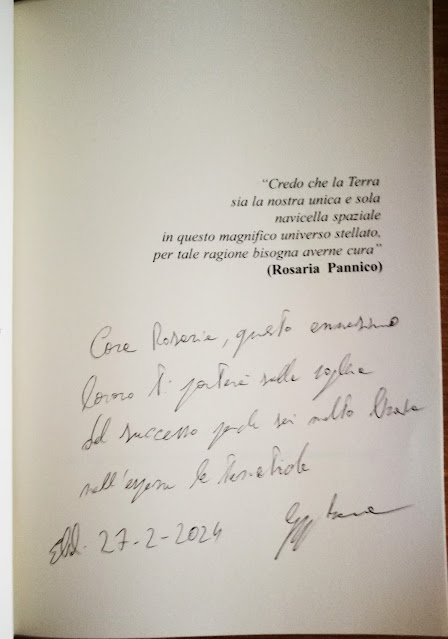 “Credo che la Terra
sia la nostra unica e sola
navicella spaziale
in questo magnifico universo stellato,
per tale ragione bisogna averne cura”
(Rosaria Pannico)
Cara Rosaria, questo ennesimo
lavoro ti porterà sulla soglia
del successo perché sei molto brava
nell'esporre le tematiche
27-2-2024